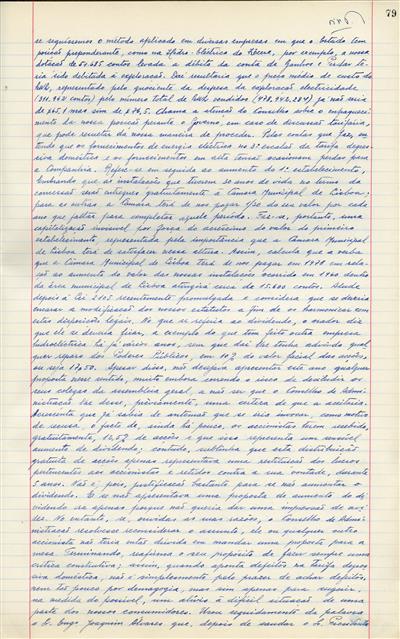 79
se seguíssemos o método aplicado em diversas empresas em que o Estado tem
posição preponderante, como na Hidro-Eléctrica do Zêzere, por exemplo, a nossa
dotação de 50.685 contos levada a débito da conta de Ganhos e Perdas te-
ria sido debitada à exploração. Daí resultaria que o preço médio de custo do
kWh, representado pelo quociente da despesa da exploração electricidade
contos) pelo número total de kWh vendidos já não seria
de mas sim de Chama a atenção do Conselho sobre o enfraquecimento
da nossa posição perante o Governo, em caso de discussão tarifária,
que pode resultar da nossa maneira de proceder. Pelas contas que fez, en-
tende que os fornecimentos de energia eléctrica no 3º escalão da tarifa degres-
siva doméstica e os fornecimentos em alta tensão ocasionam perdas para
a Companhia. Refere-se em seguida ao aumento do 1º estabelecimento,
lembrando que as instalações que tiverem 30 anos de vida no termo da
concessão serão entregues gratuitamente à Câmara Municipal de Lisboa,
para as outras a Câmara terá de nos pagar do seu valor por cada
ano que faltar para completar aquele período. Faz-se, portanto, uma
capitalização invisível por força do acréscimo do valor do primeiro
estabelecimento representada pela importância que a Câmara Municipal
de Lisboa terá de satisfazer nessa altura. Assim, calcula que a verba
que a Câmara Municipal de Lisboa terá de nos pagar em em rela-
ção ao aumento do valor das nossas instalações ocorrido em 1960 dentro
da área municipal de Lisboa atingirá cerca de 15.600 contos. Alude
depois à Lei 2105 recentemente promulgada e considera que se deveria
encarar a modificação dos nossos estatutos a fim de os harmonizar com
estas disposições legais. No que se refere ao dividendo, o orador diz
que ele se deveria fixar, a exemplo do que tem feito outra empresa
hidroeléctrica há já vários anos, sem que daí lhe tenha advindo qual-
quer reparo dos Poderes Públicos, em 10% do valor facial das acções,
ou seja Apesar disso, não desejava apresentar este ano qualquer
proposta nesse sentido, muito embora correndo o risco de desiludir os
seus colegas da assembleia geral, a não ser que o Conselho de Admi-
nistração lhe desse, previamente, uma certeza de que a aceitaria.
Acrescenta que já sabia de antemão que se iria invocar, como motivo
de recusa, o facto de, ainda há pouco, os accionistas terem recebido,
gratuitamente, 12,5% de acções e que isso representa um sensível
aumento de dividendo; contudo, sublinha que esta distribuição
gratuita de acções apenas representava uma restituição dos lucros
pertencentes aos accionistas e retidos contra a sua vontade, durante
5 anos. Não é, pois, justificação bastante para se não aumentar o
dividendo. E se não apresentava uma proposta de aumento do di-
videndo era apenas porque não queria dar uma impressão de avi-
dez. No entanto, se, ouvidas as suas razões, o Conselho de Admi-
nistração resolvesse reconsiderar o assunto, ele ou qualquer outro
accionista não teria então dúvida em mandar uma proposta para a
mesa. Terminando, reafirma o seu propósito de fazer sempre uma
crítica construtiva; assim, quando aponta defeitos na tarifa degres-
siva doméstica, não é simplesmente pelo prazer de achar defeitos,
nem tão pouco por demagogia, mas sim apenas para sugerir,
na medida do possível, um alívio à difícil situação de uma
parte dos nossos consumidores. Usou seguidamente da palavra
o Sr. Engº Joaquim Alvares que, depois de saudar o Sr. Presidente